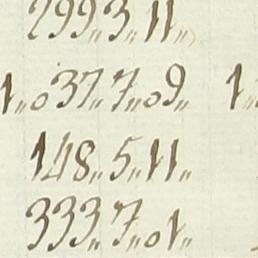 299„3„11„
1„037„7„09„ 1„
148„5„11„
333„7„01„